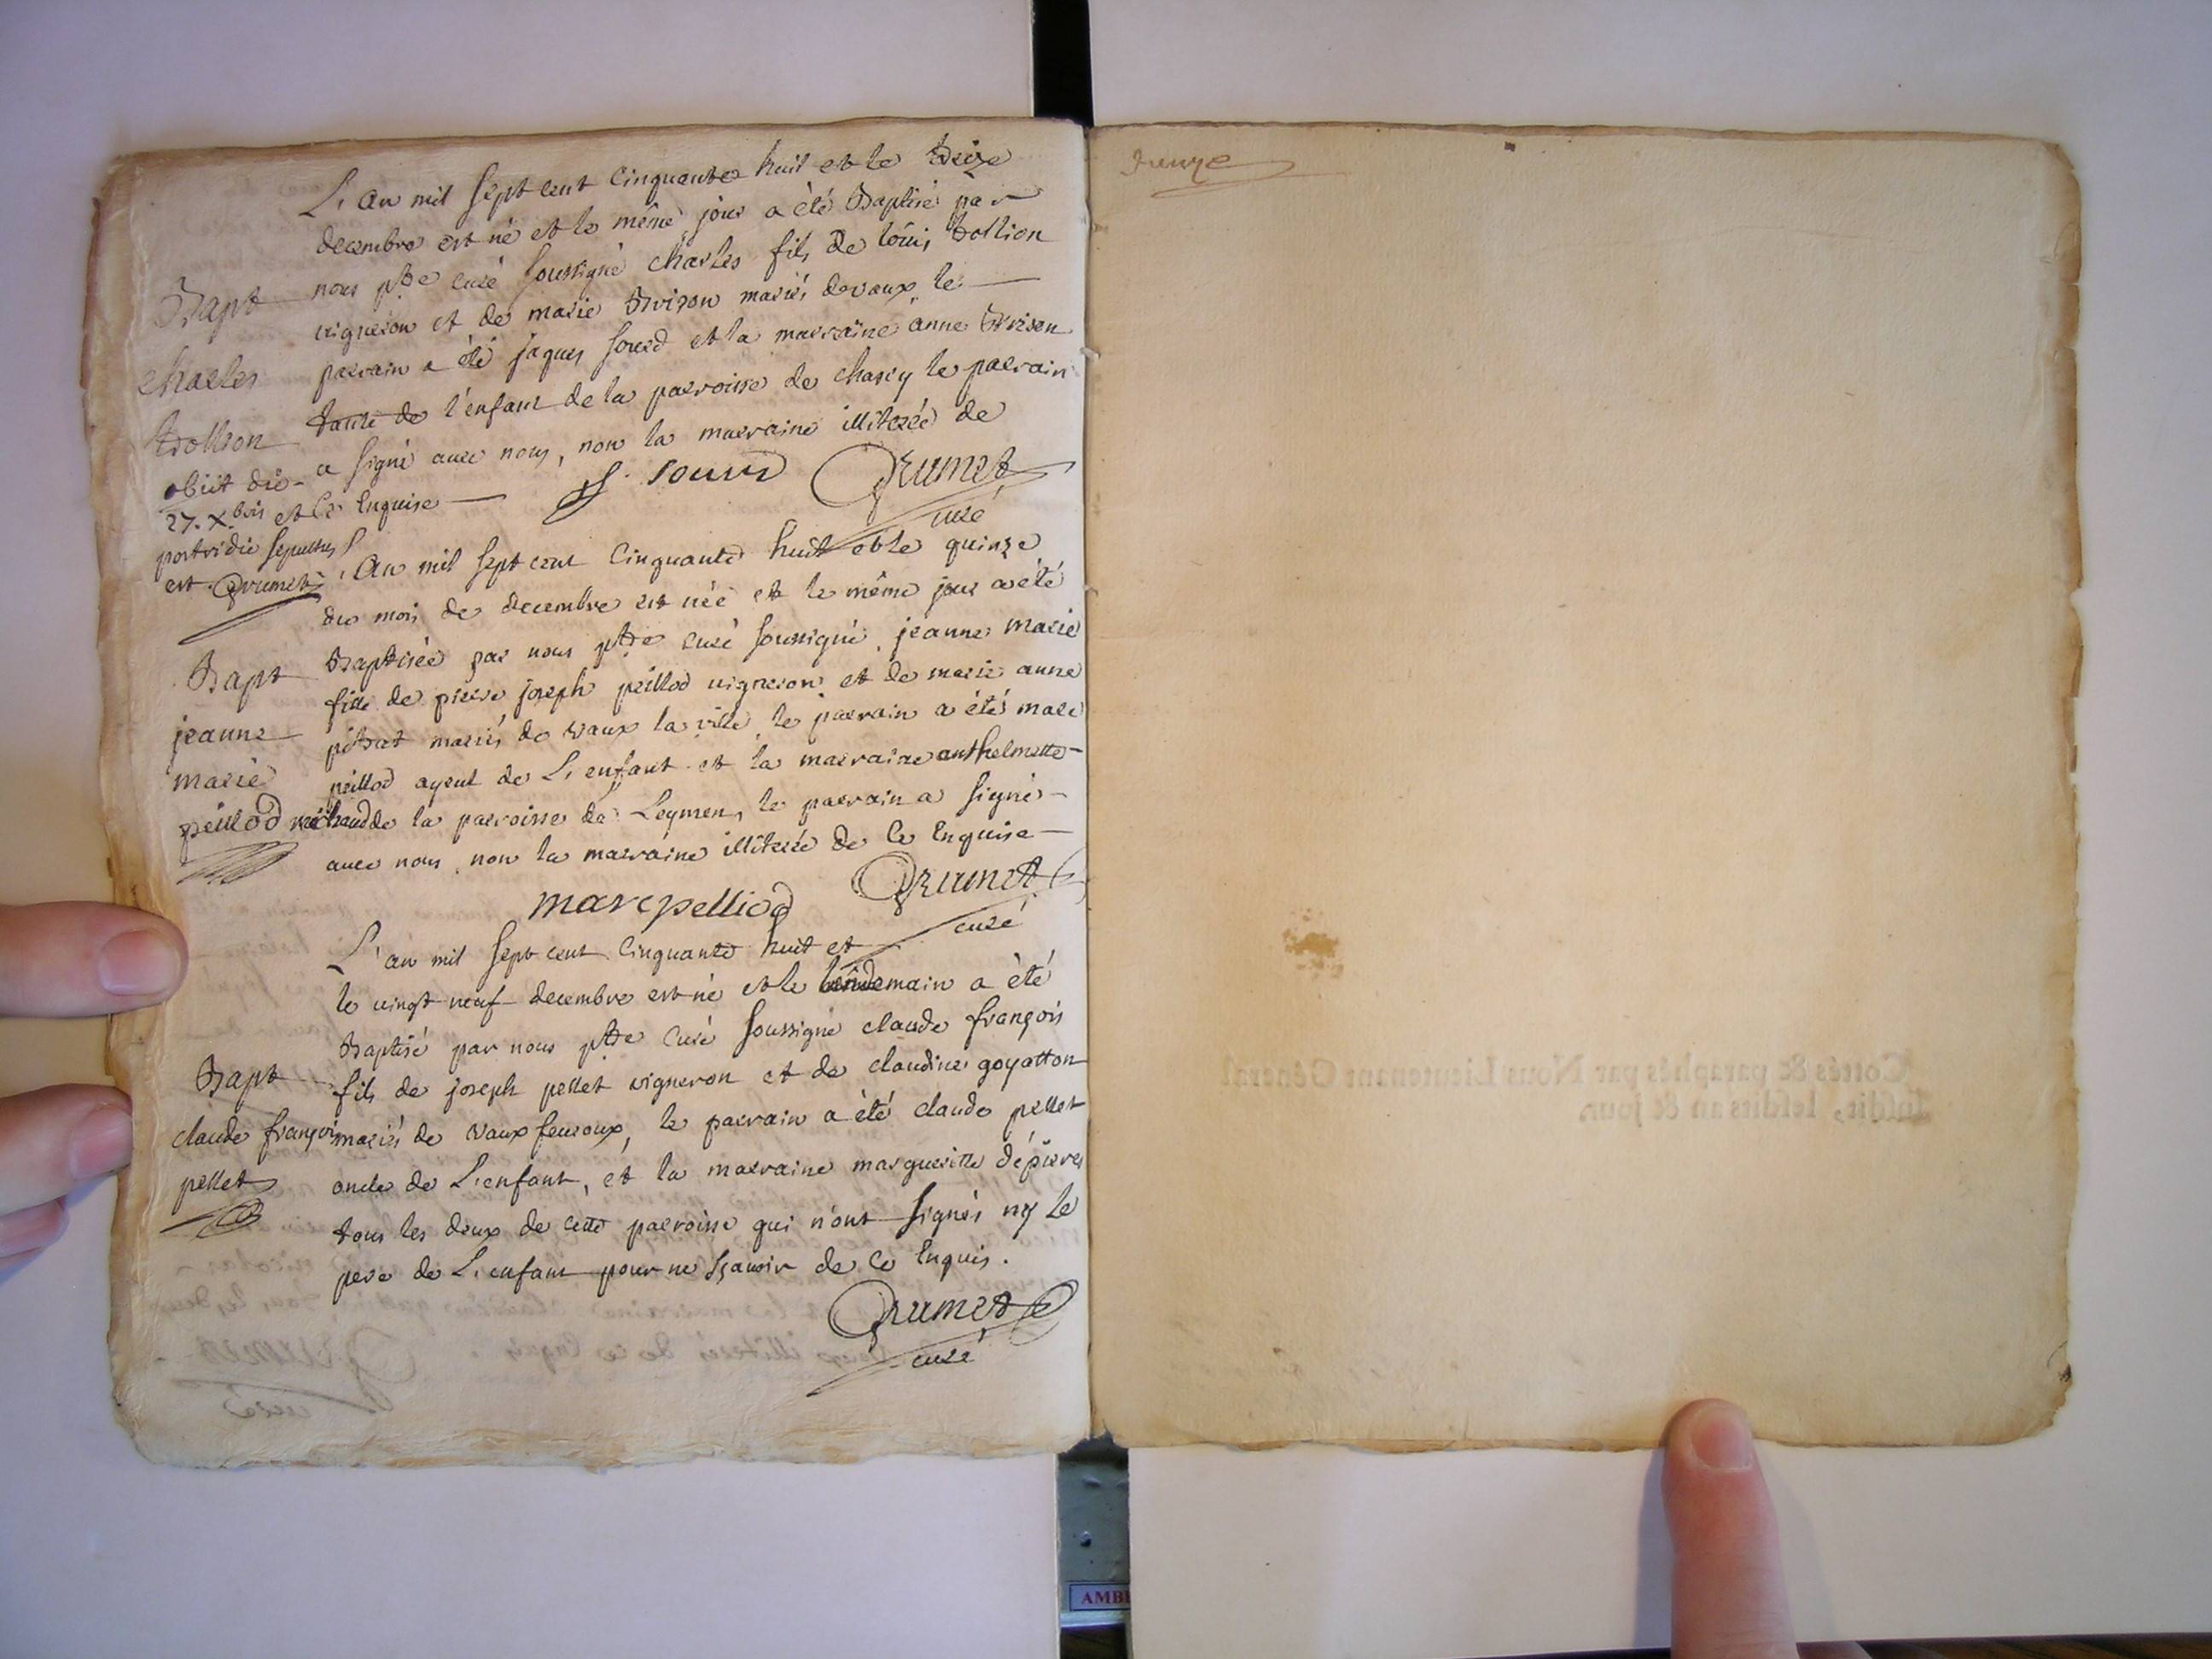 L'an mil sept cent cinquante huit et le treize
decembre est né et le même jour a été Baptisé par
nous ptre curé soussigné charles fils de loüis trollion
vigneron et de marie Brizon mariés devaux, le
parrain a été jaques sourd et la marraine anne Brizon
tante de l'enfant de la parroisse de chasey le parrain
a signé avec nous, non la marraine illiterée de
ce Enquise
Bapt
charles
trollion
obiit die
27. Xbris et
postridie sepultus
est. Brumet
J. sourd Brumet
curé
L'An mil sept cent cinquante huit et le quinze
du mois de decembre est née et le même jour a été
Baptisée par nous ptre curé soussigné, jeanne marie
fille de pierre joseph peillod vigneron et de marie anne
mariés de vaux la ville, le parrain a été marc
peillod ayeul de L'enfant et la marraine anthelmette
michaud de la parroisse de Leymen, le parrain a signé
avec nous, non la marraine illiterée de ce Enquise
Bapt
jeanne
marie
peillod
marc pelliod Brumet
curé
L'an mil sept cent cinquante huit et
le vingt neuf decembre est né et le lendemain a été
Baptisé par nous ptre curé soussigné claude françois
fils de joseph pellet vigneron et de claudine goyatton
mariés de vaux fevroux, le parrain a été claude pellet
oncle de L'enfant, et la marraine margueritte dépierre
tous les deux de cette parroisse qui n'ont signés ny le
pere de L'enfant pour ne sçavoir de ce Enquis.
Bapt
claude françois
pellet
Brumet
curé
Cottés & paraphés par Nous Lieutenant Général
susdit, lesdits an & jour.